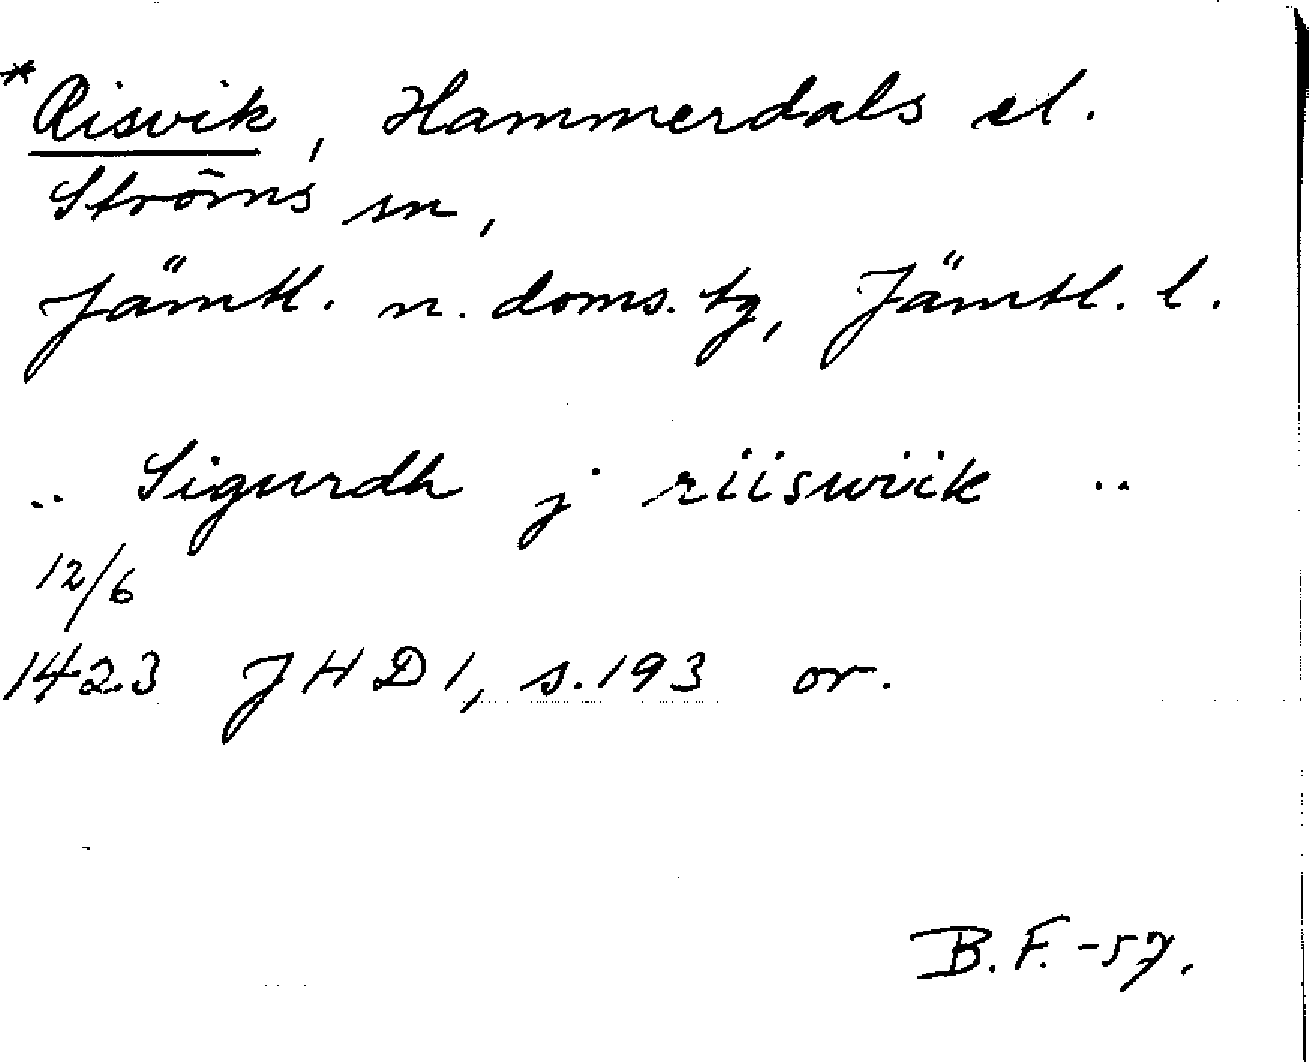 *Risvik, Hammerdals el.
Ströms sn,
Jämtl. n. doms. tg, Jämtl. l.
.. Sigurdh j riiswiik ..
12/6
1423 JHD 1, s. 193 or.
B.F. -57.